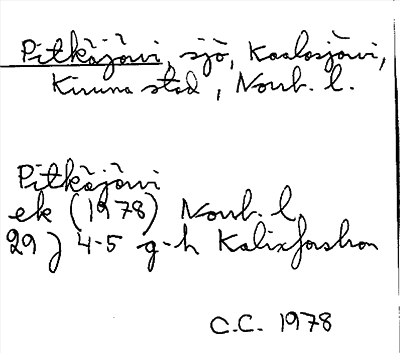 Pitkäjärvi, sjö, Kaalasjärvi,
Kiruna stad, Norrb. l.
Pitkäjärvi
ek (1978) Norrb. l
29 J 4-5 g-h Kalixforsbron
C.C. 1978